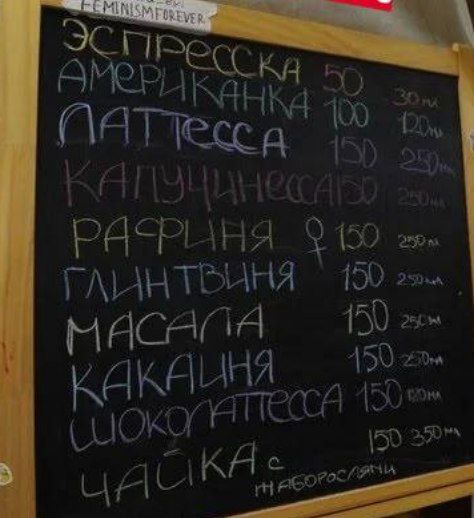 FEMINISMFOREVER
ЭСПРЕССКА 50 30 мл
АМЕРИКАНКА 100 120 мл
ЛАТТЕССА 150 250 мл
КАПУЧИНЕССА 150 250 мл
РАФИНЯ ♀ 150 250 мл
ГЛИНТВИНЯ 150 250 мл
МАСАЛА 150 250 мл
КАКАИНЯ 150 250 мл
ШОКОЛАТТЕССА 150 мл
ЧАЙКА с 150 350 мл
ЖАБОРОСЛЯМИ